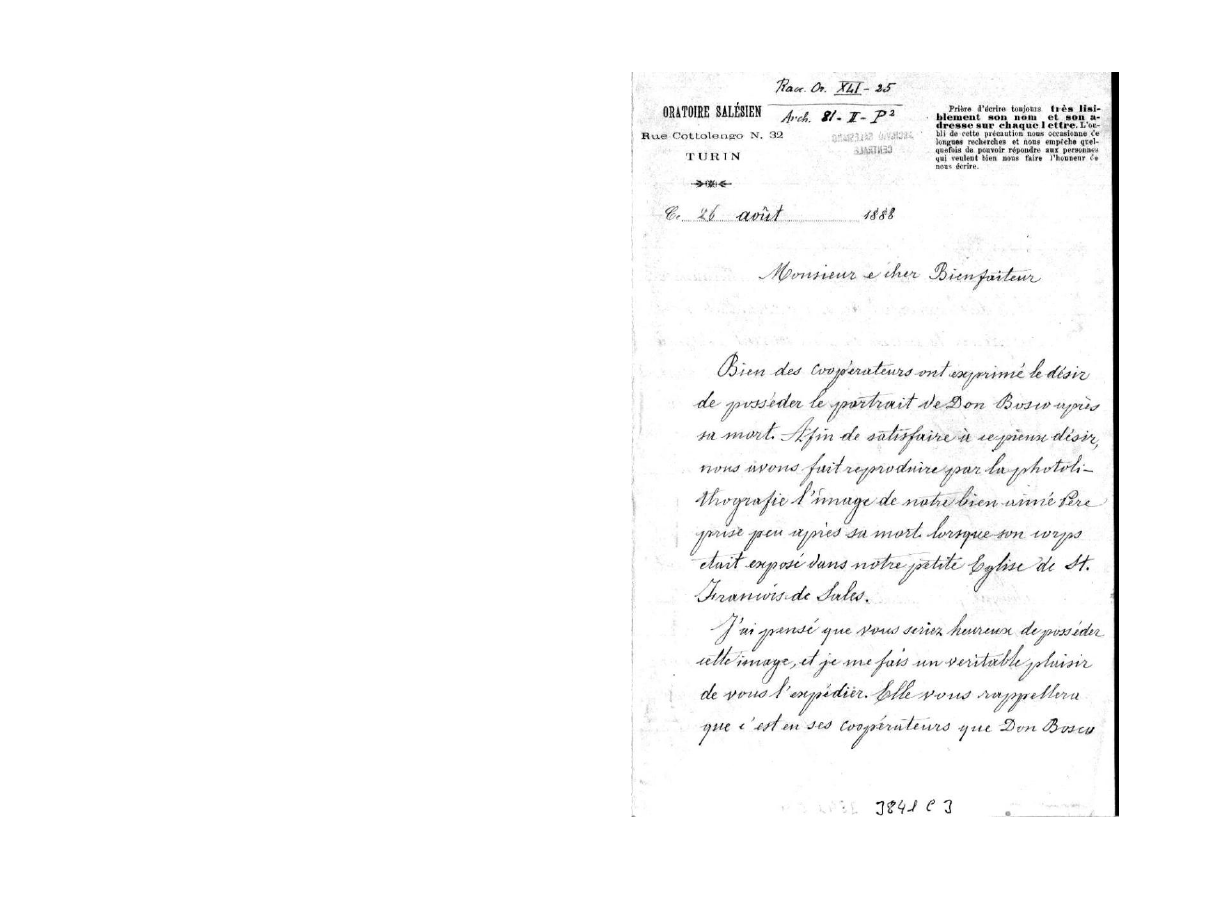 Rac. Or. XLI - 25
ORATOIRE SALÉSIEN
Arch. 81 - II - P²
Rue Cottolengo N. 32
TURIN
ARCHIVIO SALESIANO
CENTRALE
Prière d'écrire toujours très lisi-
blement son nom et son a-
dresse sur chaque lettre. L'ou-
bli de cette précaution nous occasionne de
longues recherches et nous empêche quel-
quefois de pouvoir répondre aux personnes
qui veulent bien nous faire l'honneur de
nous écrire.
26 août 1888
Monsieur e cher Bienfaiteur
Bien des Coopérateurs ont exprimé le désir
de posséder le portrait de Don Bosco après
sa mort. Afin de satisfaire à ce pieux désir,
nous avons fait reproduire par la photoli-
thografie l'image de notre bien aimé Père
prise peu après sa mort lorsque son corps
etait exposé dans notre petite Eglise de St.
Francois de Sales.
J'ai pensé que vous seriez heureux de posséder
cette image, et je me fais un veritable plaisir
de vous l'expédier. Elle vous rappellera
que c'est en ses Coopérateurs que Don Bosco
3841 C 3